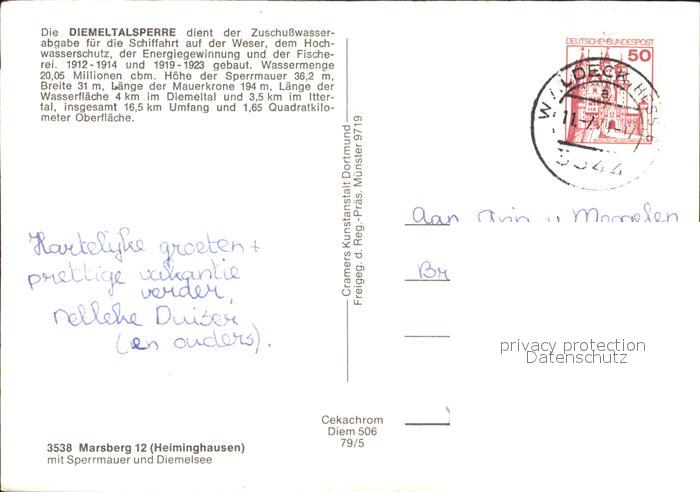 Die DIEMELTALSPERRE dient der Zuschußwasser-
abgabe für die Schiffahrt auf der Weser, dem Hoch-
wasserschutz, der Energiegewinnung und der Fische-
rei. 1912-1914 und 1919-1923 gebaut. Wassermenge
20,05 Millionen cbm. Höhe der Sperrmauer 36,2 m,
Breite 31 m, Länge der Mauerkrone 194 m, Länge der
Wasserfläche 4 km im Diemeltal und 3,5 km im Itter-
tal, insgesamt 16,5 km Umfang und 1,65 Quadratkilo-
meter Oberfläche.
Hartelijke groeten +
prettige vakantie
verder,
Nelleke Duiser
(en ouders).
3538 Marsberg 12 (Heiminghausen)
mit Sperrmauer und Diemelsee
Cramers Kunstanstalt Dortmund
Freigeg. d. Reg.-Präs. Münster 9719
Cekachrom
Diem 506
79/5
DEUTSCHE BUNDESPOST
50
WALDECK HESS
a
Aan
Br
privacy protection
Datenschutz